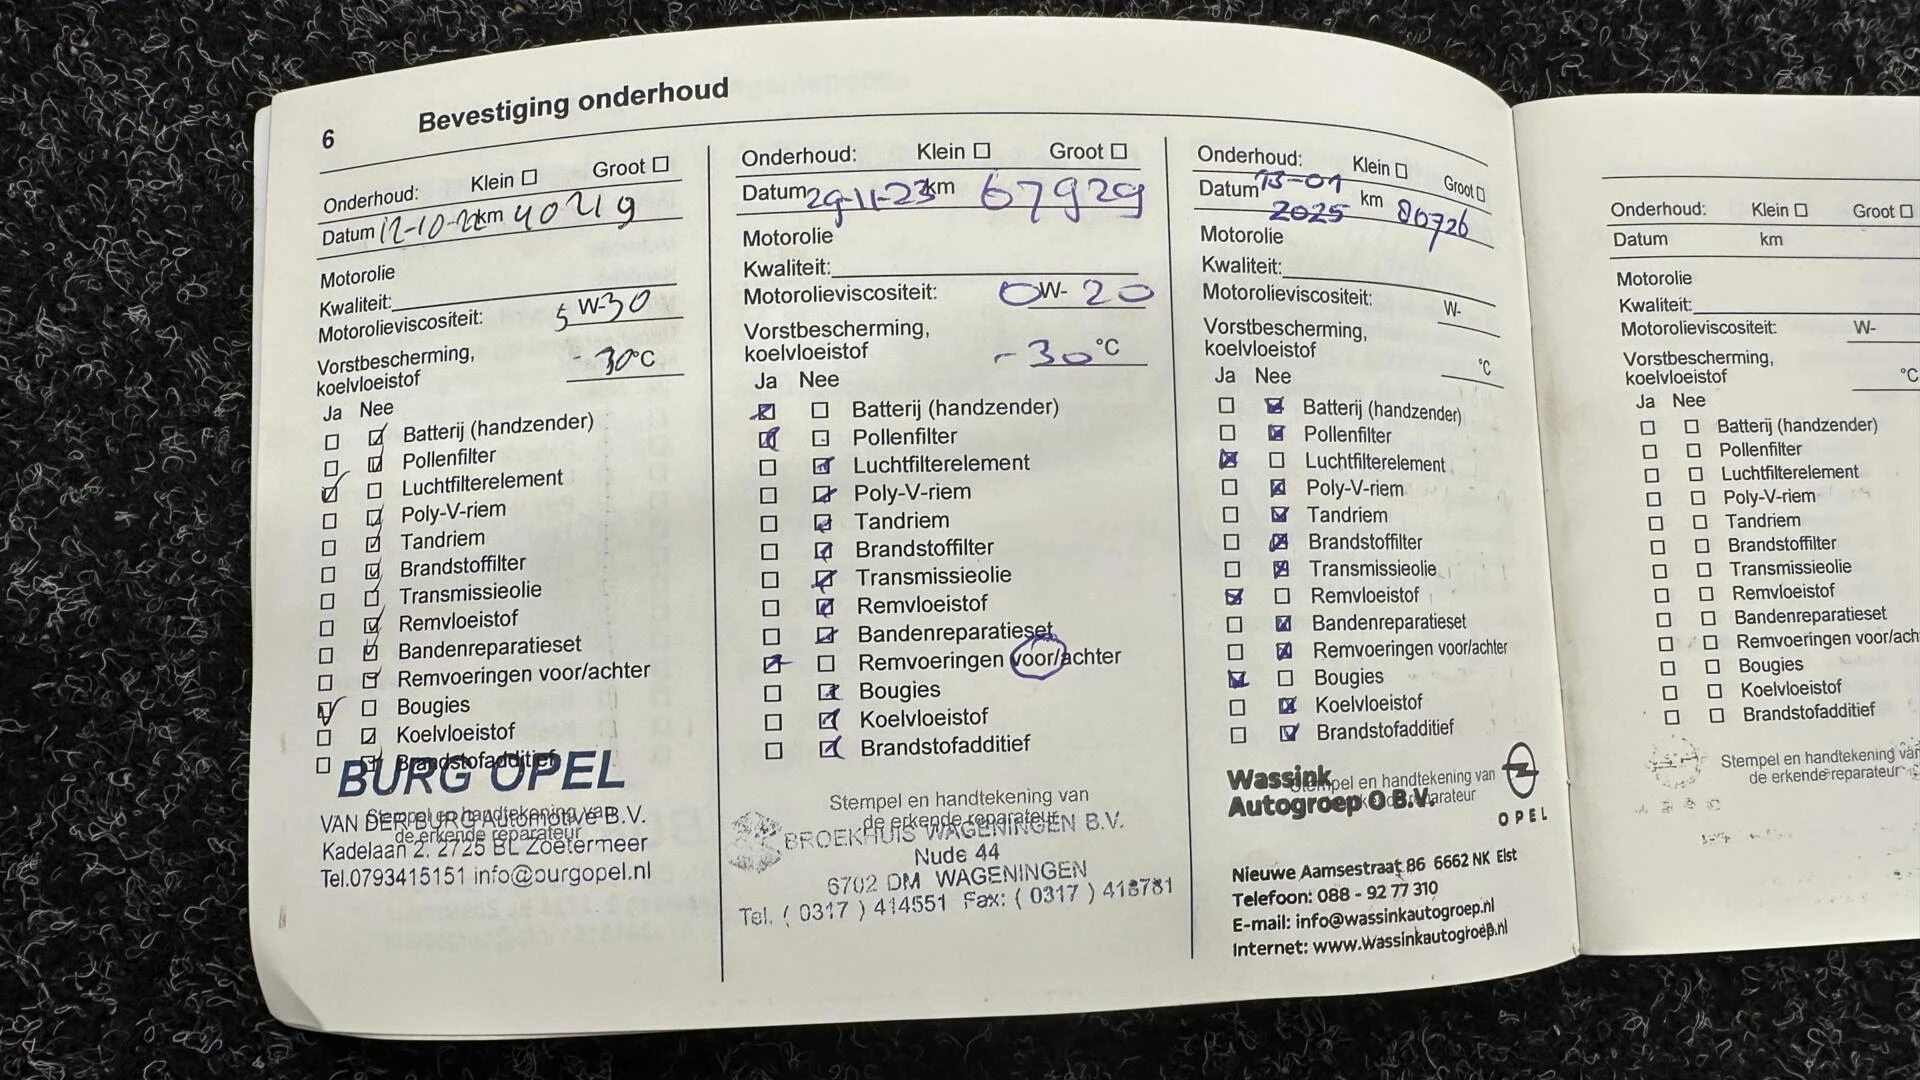 6 Bevestiging onderhoud
Onderhoud: Klein Groot
Datum 12-10-22 km 40219
Motorolie
Kwaliteit:
Motorolieviscositeit: 5 W-30
Vorstbescherming,
koelvloeistof -30°C
Ja Nee
Batterij (handzender)
Pollenfilter
Luchtfilterelement
Poly-V-riem
Tandriem
Brandstoffilter
Transmissieolie
Remvloeistof
Bandenreparatieset
Remvoeringen voor/achter
Bougies
Koelvloeistof
Brandstofadditief
BURG OPEL
Stempel en handtekening van
de erkende reparateur
VAN DER BURG Automotive B.V.
Kadelaan 2. 2725 BL Zoetermeer
Tel.0793415151 info@burgopel.nl
Onderhoud: Klein Groot
Datum 29-11-23 km 67929
Motorolie
Kwaliteit:
Motorolieviscositeit: 0W-20
Vorstbescherming,
koelvloeistof -30°C
Ja Nee
Batterij (handzender)
Pollenfilter
Luchtfilterelement
Poly-V-riem
Tandriem
Brandstoffilter
Transmissieolie
Remvloeistof
Bandenreparatieset
Remvoeringen voor/achter
Bougies
Koelvloeistof
Brandstofadditief
Stempel en handtekening van
de erkende reparateur
BROEKHUIS WAGENINGEN B.V.
Nude 44
6702 DM WAGENINGEN
Tel. ( 0317 ) 414551 Fax: ( 0317 ) 418781
Onderhoud: Klein Groot
Datum 13-01 km 80726
2025
Motorolie
Kwaliteit:
Motorolieviscositeit: W-
Vorstbescherming,
koelvloeistof °C
Ja Nee
Batterij (handzender)
Pollenfilter
Luchtfilterelement
Poly-V-riem
Tandriem
Brandstoffilter
Transmissieolie
Remvloeistof
Bandenreparatieset
Remvoeringen voor/achter
Bougies
Koelvloeistof
Brandstofadditief
Stempel en handtekening van
de erkende reparateur
Wassink
Autogroep O B.V.
OPEL
Nieuwe Aamsestraat 86 6662 NK Elst
Telefoon: 088 - 92 77 310
E-mail: info@wassinkautogroep.nl
Internet: www.wassinkautogroep.nl
Onderhoud: Klein Groot
Datum km
Motorolie
Kwaliteit:
Motorolieviscositeit: W-
Vorstbescherming,
koelvloeistof °C
Ja Nee
Batterij (handzender)
Pollenfilter
Luchtfilterelement
Poly-V-riem
Tandriem
Brandstoffilter
Transmissieolie
Remvloeistof
Bandenreparatieset
Remvoeringen voor/ach
Bougies
Koelvloeistof
Brandstofadditief
Stempel en handtekening van
de erkende reparateur